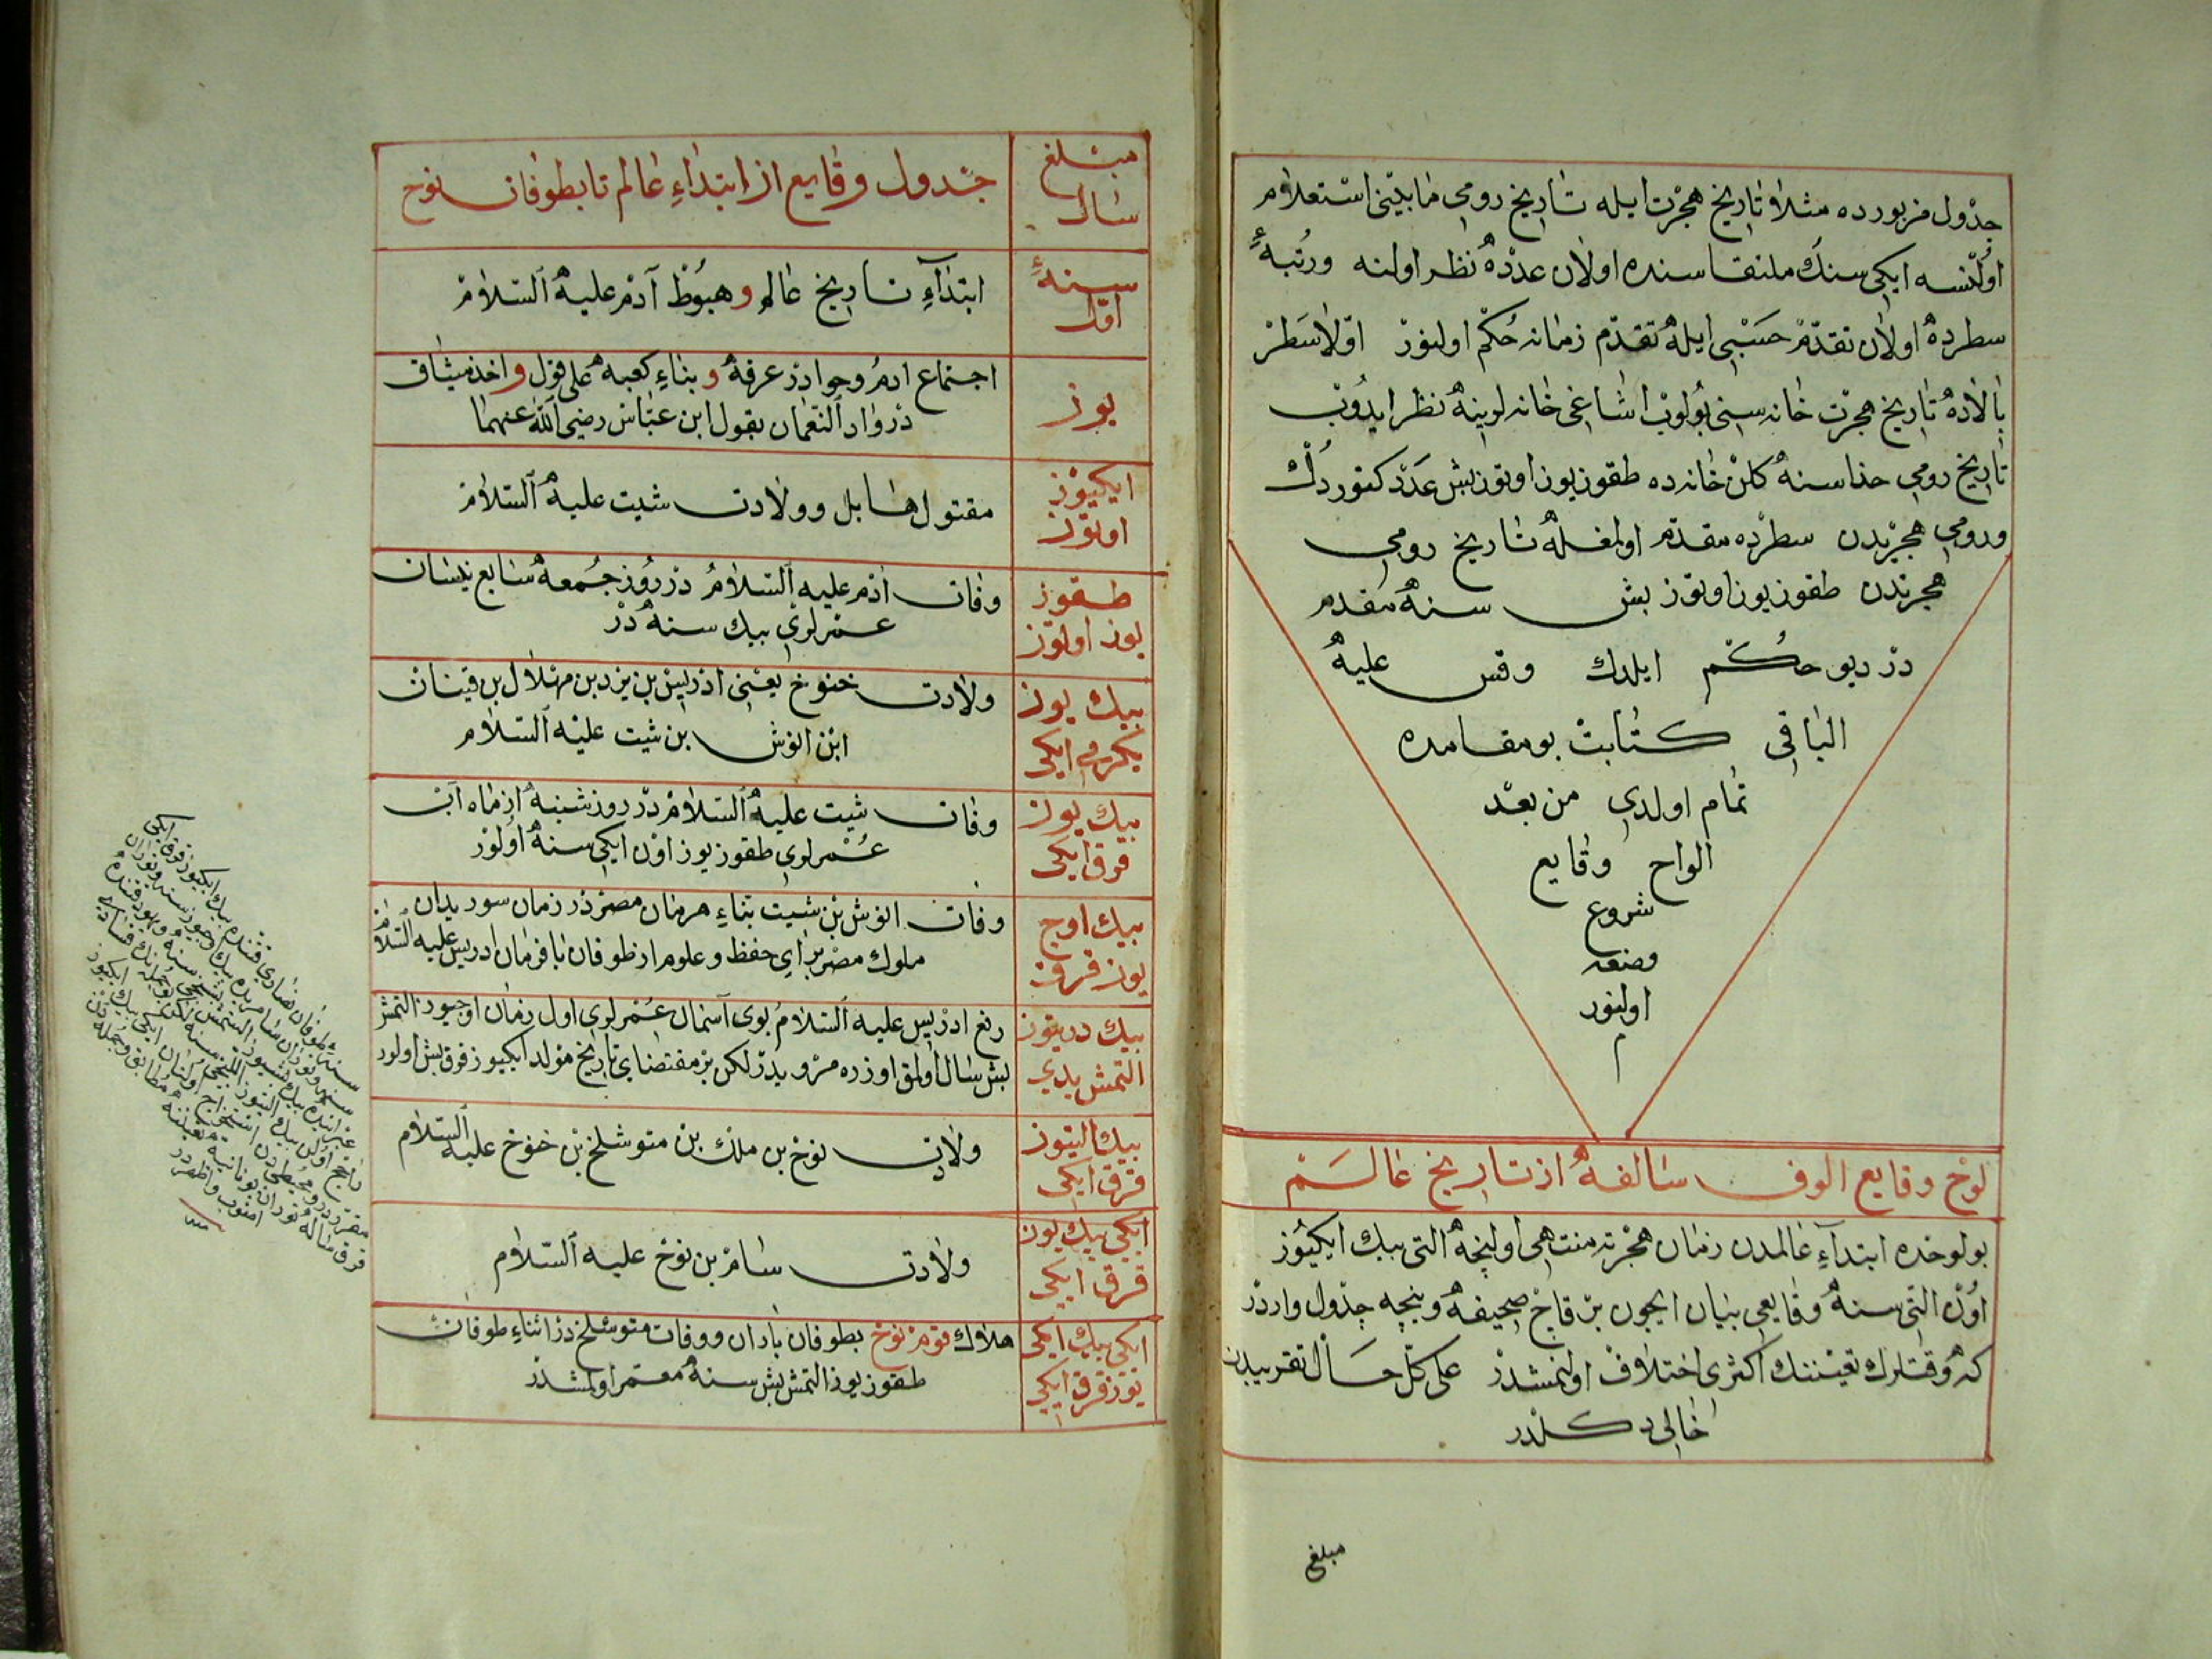 جدول مزبورده مثلا تاریخ هجرت ایله تاریخ رومی مابینی استعلام
اولنسه ایکی سنك ملتقاسنده اولان عددە نظر اولنه ورتبهٔ
سطردە اولان تقدم حسبی ایله تقدم زمانه حکم اولنور اولا سطر
بالادە تاریخ هجرت خانه سنی بولوب اشاغی خانه لرینه نظر ایدوب
تاریخ رومی حذاسنه کلن خانه ده طقوزیوز اوتوز بش عدد کتوردك
ورومی هجریدن سطرده مقدم اولمغله تاریخ رومی
هجرتدن طقوزیوز اوتوز بش سنه مقدم
در دیو حکم ایلدك وقس علیه
الباقی کتابت بو مقامده
تمام اولدی من بعد
الواح وقایع
شروع
وضعه
اولنور
م
لوح وقایع الوف سالفه از تاریخ عالم
بو لوحده ابتداء عالمدن زمان هجرته منتهی اولنجه التی بیك ایکیوز
اون التی سنه وقایعی بیان ایچون بر قاچ صحیفه و بنچه جدول واردر
که وقتلرك تعیننك اکثری اختلاف اولنمشدر علی کل حال تقریبدن
خالی دکلدر
مبلغ
مبلغ سال
جدول وقایع از ابتداء عالم تا بطوفان نوح
سنهٔ اول
ابتداء تاریخ عالم و هبوط آدم علیه السلام
یوز
اجتماع ادم وحوا در عرفه و بناء کعبه علی قول و اخذ میثاق
در واد النعمان بقول ابن عباس رضی الله عنهما
ایکیوز اوتوز
مقتول هابل و ولادت شیت علیه السلام
طقوز یوز اوتوز
وفات ادم علیه السلام در روز جمعه سابع نیسان
عمرلری بیك سنه در
بیك یوز یکرمی ایکی
ولادت خنوخ یعنی ادریس بن یزد بن مهلال بن قینان
ابن انوش بن شیت علیه السلام
بیك یوز قرق ایکی
وفات شیت علیه السلام در روز شنبه از ماه آب
عمرلری طقوز یوز اون ایکی سنه اولور
بیك اوچ یوز قرق
وفات انوش بن شیت بناء هرمان مصر در زمان سوریدان
ملوك مصر برای حفظ و علوم از طوفان با فرمان ادریس علیه السلام
بیك دریتوز التمش یدی
رفع ادریس علیه السلام بوی آسمان عمرلری اول زمان اوچیوز التمش
بش سال اولمق اوزره مرویدر لکن بر مقتضای تاریخ مولد ایکیوز قرق بش اولور
بیك التیوز قرق ایکی
ولادت نوح بن ملك بن متوشلخ بن خنوخ علیه السلام
ایکی بیك یوز قرق ایکی
ولادت سام بن نوح علیه السلام
ایکی بیك ایکی یوز قرق ایکی
هلاك قوم نوح بطوفان باران و وفات متوشلخ در اثناء طوفان
طقوز یوز التمش بش سنه معمر اولمشدر